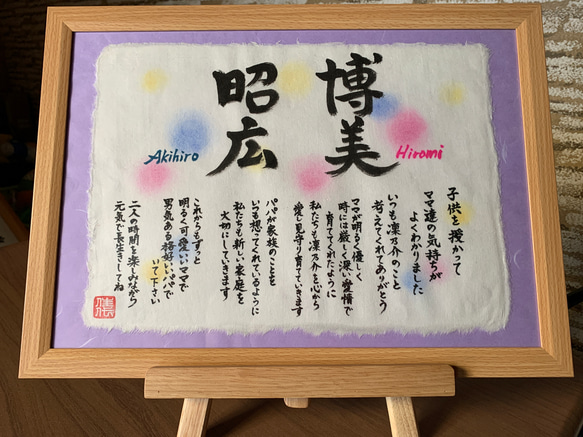 博美
Hiromi
昭広
Akihiro
子供を授かって
ママ達の気持ちが
よくわかりました
いつも凜乃介のこと
考えてくれてありがとう
ママが明るく優しく
時には厳しく深い愛情で
育ててくれたように
私たちも凜乃介を心から
愛し見守り育てていきます
パパが家族のことを
いつも想ってくれているように
私たちも新しい家庭を
大切にしていきます
これからもずっと
明るく可愛いいママで
男気ある格好いいパパで
いて下さい
二人の時間を楽しみながら
元気で長生きしてね